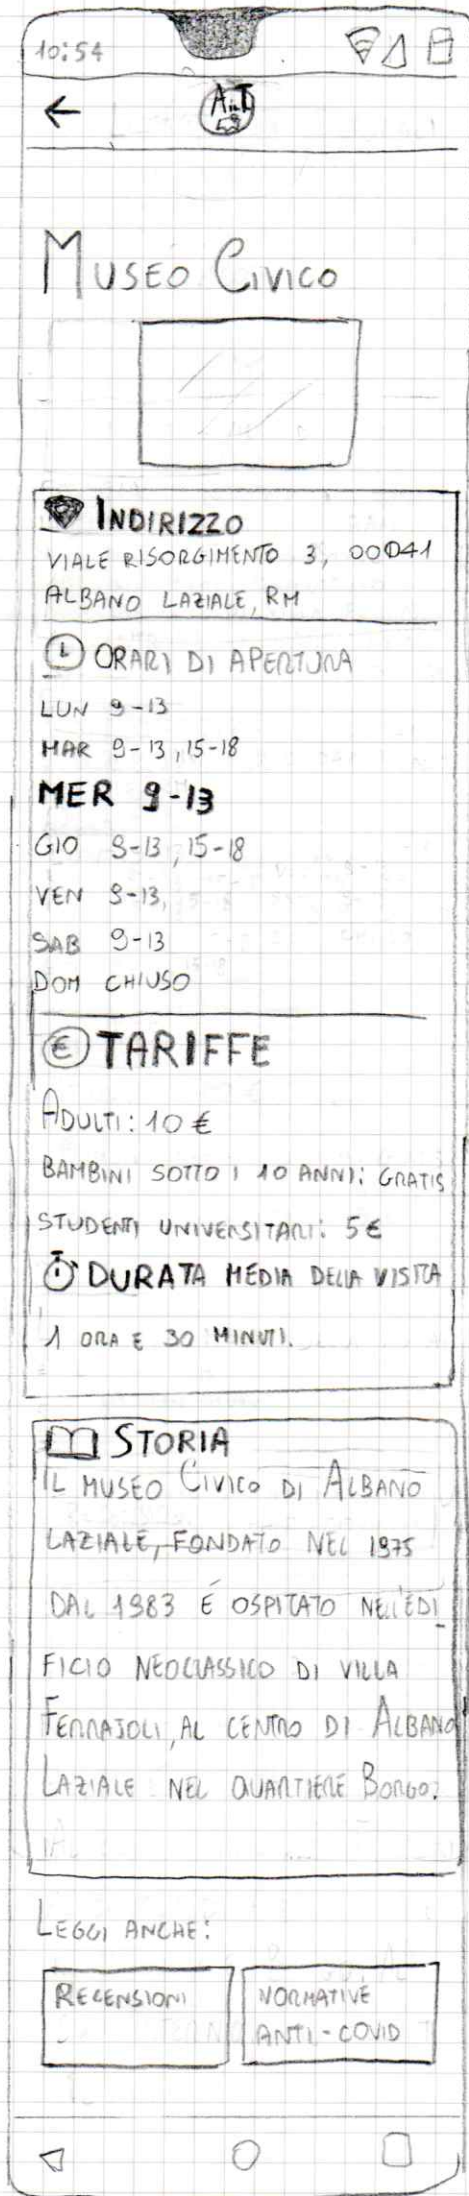 10:54
MUSEO CIVICO
INDIRIZZO
VIALE RISORGIMENTO 3, 00041
ALBANO LAZIALE, RM
ORARI DI APERTURA
LUN 9-13
MAR 9-13, 15-18
MER 9-13
GIO 9-13, 15-18
VEN 9-13,
SAB 9-13
DOM CHIUSO
€ TARIFFE
ADULTI: 10 €
BAMBINI SOTTO I 10 ANNI: GRATIS
STUDENTI UNIVERSITARI: 5€
DURATA MEDIA DELLA VISITA
1 ORA E 30 MINUTI.
STORIA
IL MUSEO CIVICO DI ALBANO
LAZIALE, FONDATO NEL 1975
DAL 1983 É OSPITATO NELL'EDI_
FICIO NEOCLASSICO DI VILLA
FERRAJOLI, AL CENTRO DI ALBANO
LAZIALE NEL QUARTIERE BORGO.
LEGGI ANCHE:
RECENSIONI
NORMATIVE
ANTI-COVID